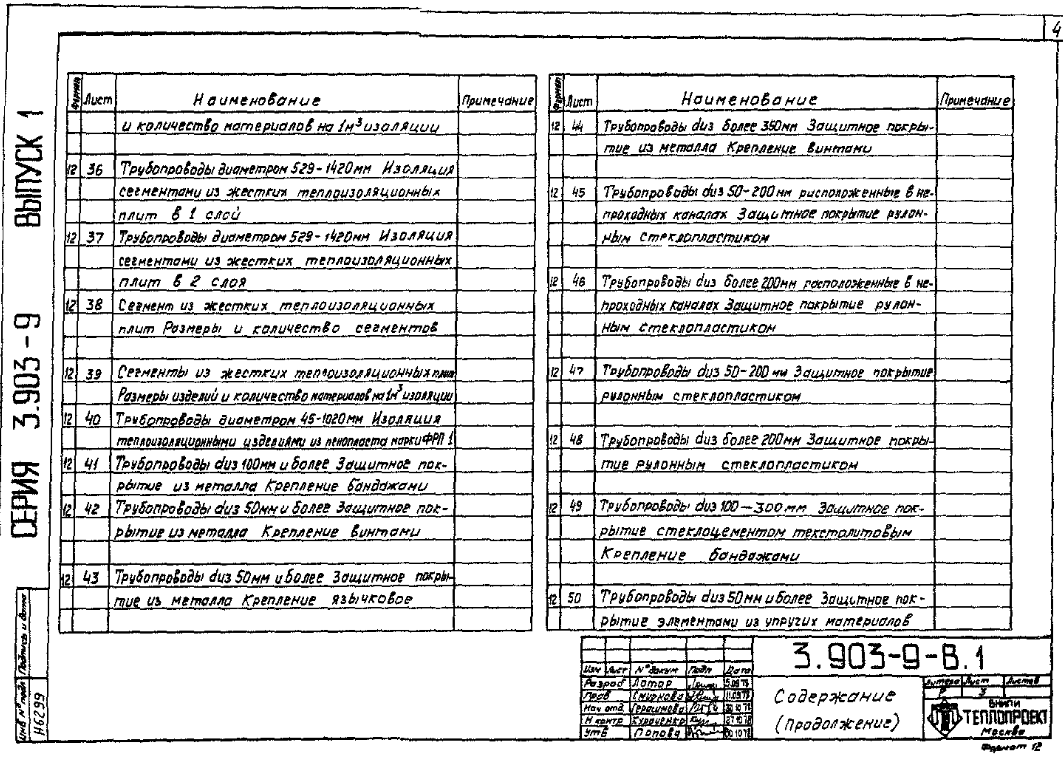 4
СЕРИЯ 3.903-9 ВЫПУСК 1
Формат Лист Наименование Примечание
и количество материалов на 1м³ изоляции
12 36 Трубопроводы диаметром 529-1420мм Изоляция
сегментами из жестких теплоизоляционных
плит в 1 слой
12 37 Трубопроводы диаметром 529-1420мм Изоляция
сегментами из жестких теплоизоляционных
плит в 2 слоя
12 38 Сегмент из жестких теплоизоляционных
плит Размеры и количество сегментов
12 39 Сегменты из жестких теплоизоляционных плит
Размеры изделий и количество материалов на 1м³ изоляции
12 40 Трубопроводы диаметром 45-1020мм Изоляция
теплоизоляционными изделиями из пенопласта марки ФРП 1
12 41 Трубопроводы dиз 100мм и более Защитное пок-
рытие из металла Крепление бандажами
12 42 Трубопроводы dиз 50мм и более Защитное пок-
рытие из металла Крепление винтами
12 43 Трубопроводы dиз 50мм и более Защитное покры-
тие из металла Крепление язычковое
Формат Лист Наименование Примечание
12 44 Трубопроводы dиз более 350мм Защитное покры-
тие из металла Крепление винтами
12 45 Трубопроводы dиз 50-200мм расположенные в не-
проходных каналах Защитное покрытие рулон-
ным стеклопластиком
12 46 Трубопроводы dиз более 200мм расположенные в не-
проходных каналах Защитное покрытие рулон-
ным стеклопластиком
12 47 Трубопроводы dиз 50-200мм Защитное покрытие
рулонным стеклопластиком
12 48 Трубопроводы dиз более 200мм Защитное покры-
тие рулонным стеклопластиком
12 49 Трубопроводы dиз 100-300мм Защитное пок-
рытие стеклоцементом текстолитовым
Крепление бандажами
12 50 Трубопроводы dиз 50мм и более Защитное пок-
рытие элементами из упругих материалов
Инв № подл Подпись и дата
Н6299
3.903-9-В.1
Изм Лист № докум Подп Дата
Разраб Лотор
Пров Смирнова
Нач отд Герасимова
Н контр
Утв Попова
Содержание
(Продолжение)
Литера Лист Листов
Р 3
ВНИПИ
ТЕПЛОПРОЕКТ
Москва
Формат 12